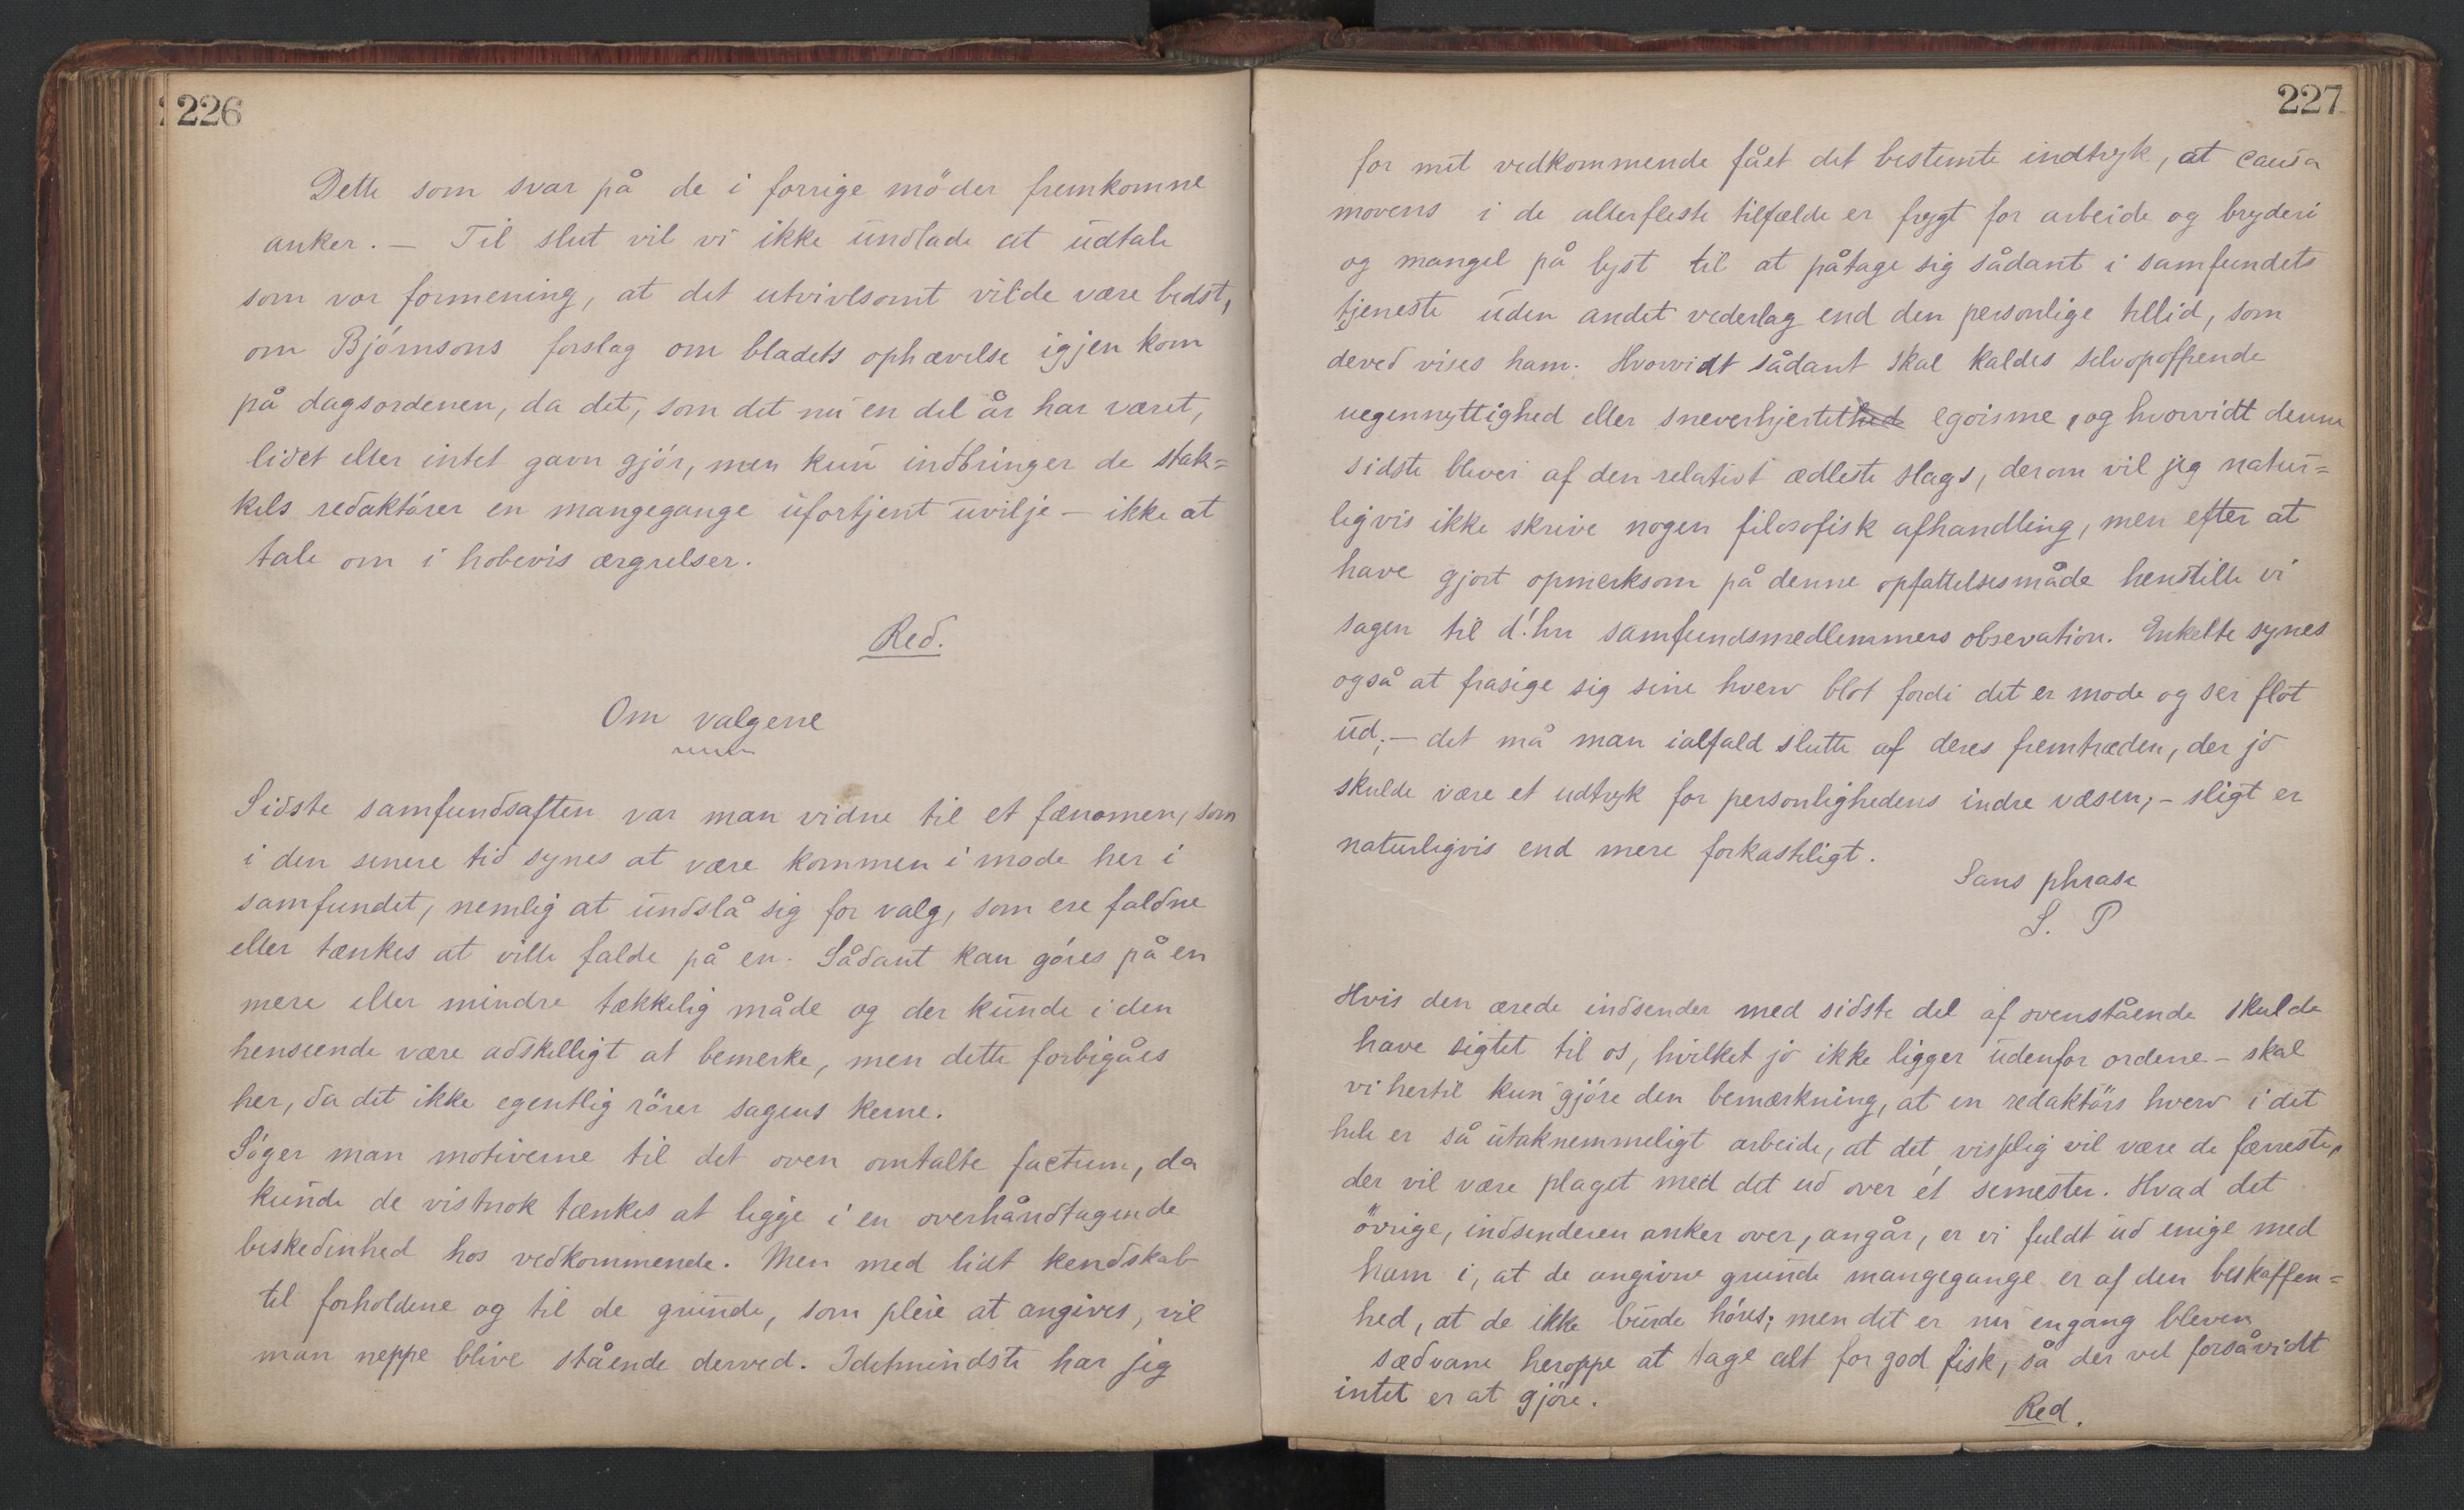 226
Dette som svar på de i forrige möder fremkomne
anker. — Til slut vil vi ikke undlade at udtale
som vor formening, at det utvivlsomt vilde være bedst,
om Björnsons forslag om bladets ophævelse igjen kom
på dagsordenen, da det, som det nu en del år har været,
lidet eller intet gavn gjör, men kun indbringer de stak=
kels redaktörer en mangegange ufortjent uvilje — ikke at
tale om i hobevis ærgrelser.
Red.
Om valgene
Sidste samfundsaften var man vidne til et fænomen, som
i den senere tid synes at være kommen i mode her i
samfundet, nemlig at undslå sig for valg, som ere faldne
eller tænkes at ville falde på en. Sådant kan göres på en
mere eller mindre tækkelig måde og der kunde i den
henseende være adskelligt at bemerke, men dette forbigåes
her, da det ikke egentlig rörer sagens kerne.
Söger man motiverne til det oven omtalte factum, da
kunde de vistnok tænkes at ligge i en overhåndtagende
beskedenhed hos vedkommende. Men med lidt kendskab
til forholdene og til de grunde, som pleie at angives, vil
man neppe blive stående derved. Idetmindste har jeg
227
for mit vedkommende fået det bestemte indtryk, at causa
movens i de allerfleste tilfælde er frygt for arbeide og bryderi
og mangel på lyst til at påtage sig sådant i samfundets
tjeneste uden andet vederlag end den personlige tillid, som
derved vises ham. Hvorvidt sådant skal kaldes selvopoffrende
uegennyttighed eller sneverhjertethed egoisme, og hvorvidt denne
sidste bliver af den relativt ædleste slags, derom vil jeg natur=
ligvis ikke skrive nogen filosofisk afhandling, men efter at
have gjort opmerksom på denne opfattelsesmåde henstille vi
sagen til d'hrr samfundsmedlemmers observation. Enkelte synes
også at frasige sig sine hverv blot fordi det er mode og ser flot
ud; — det må man ialfald slutte af deres fremtræden, der jo
skulde være et udtryk for personlighedens indre væsen; — sligt er
naturligvis end mere forkasteligt.
Sans phrase
S. P
Hvis den ærede indsender med sidste del af ovenstående skulde
have sigtet til os, hvilket jo ikke ligger udenfor ordene — skal
vi hertil kun gjöre den bemærkning, at en redaktörs hverv i det
hele er så utaknemmeligt arbeide, at det visselig vil være de færreste,
der vil være plaget med det ud over ét semester. Hvad det
övrige, indsenderen anker over, angår, er vi fuldt ud enige med
ham i, at de angivne grunde mangegange er af den beskaffen=
hed, at de ikke burde höres; men det er nu engang bleven
sædvane heroppe at tage alt for god fisk, så der vel forsåvidt
intet er at gjöre.
Red.